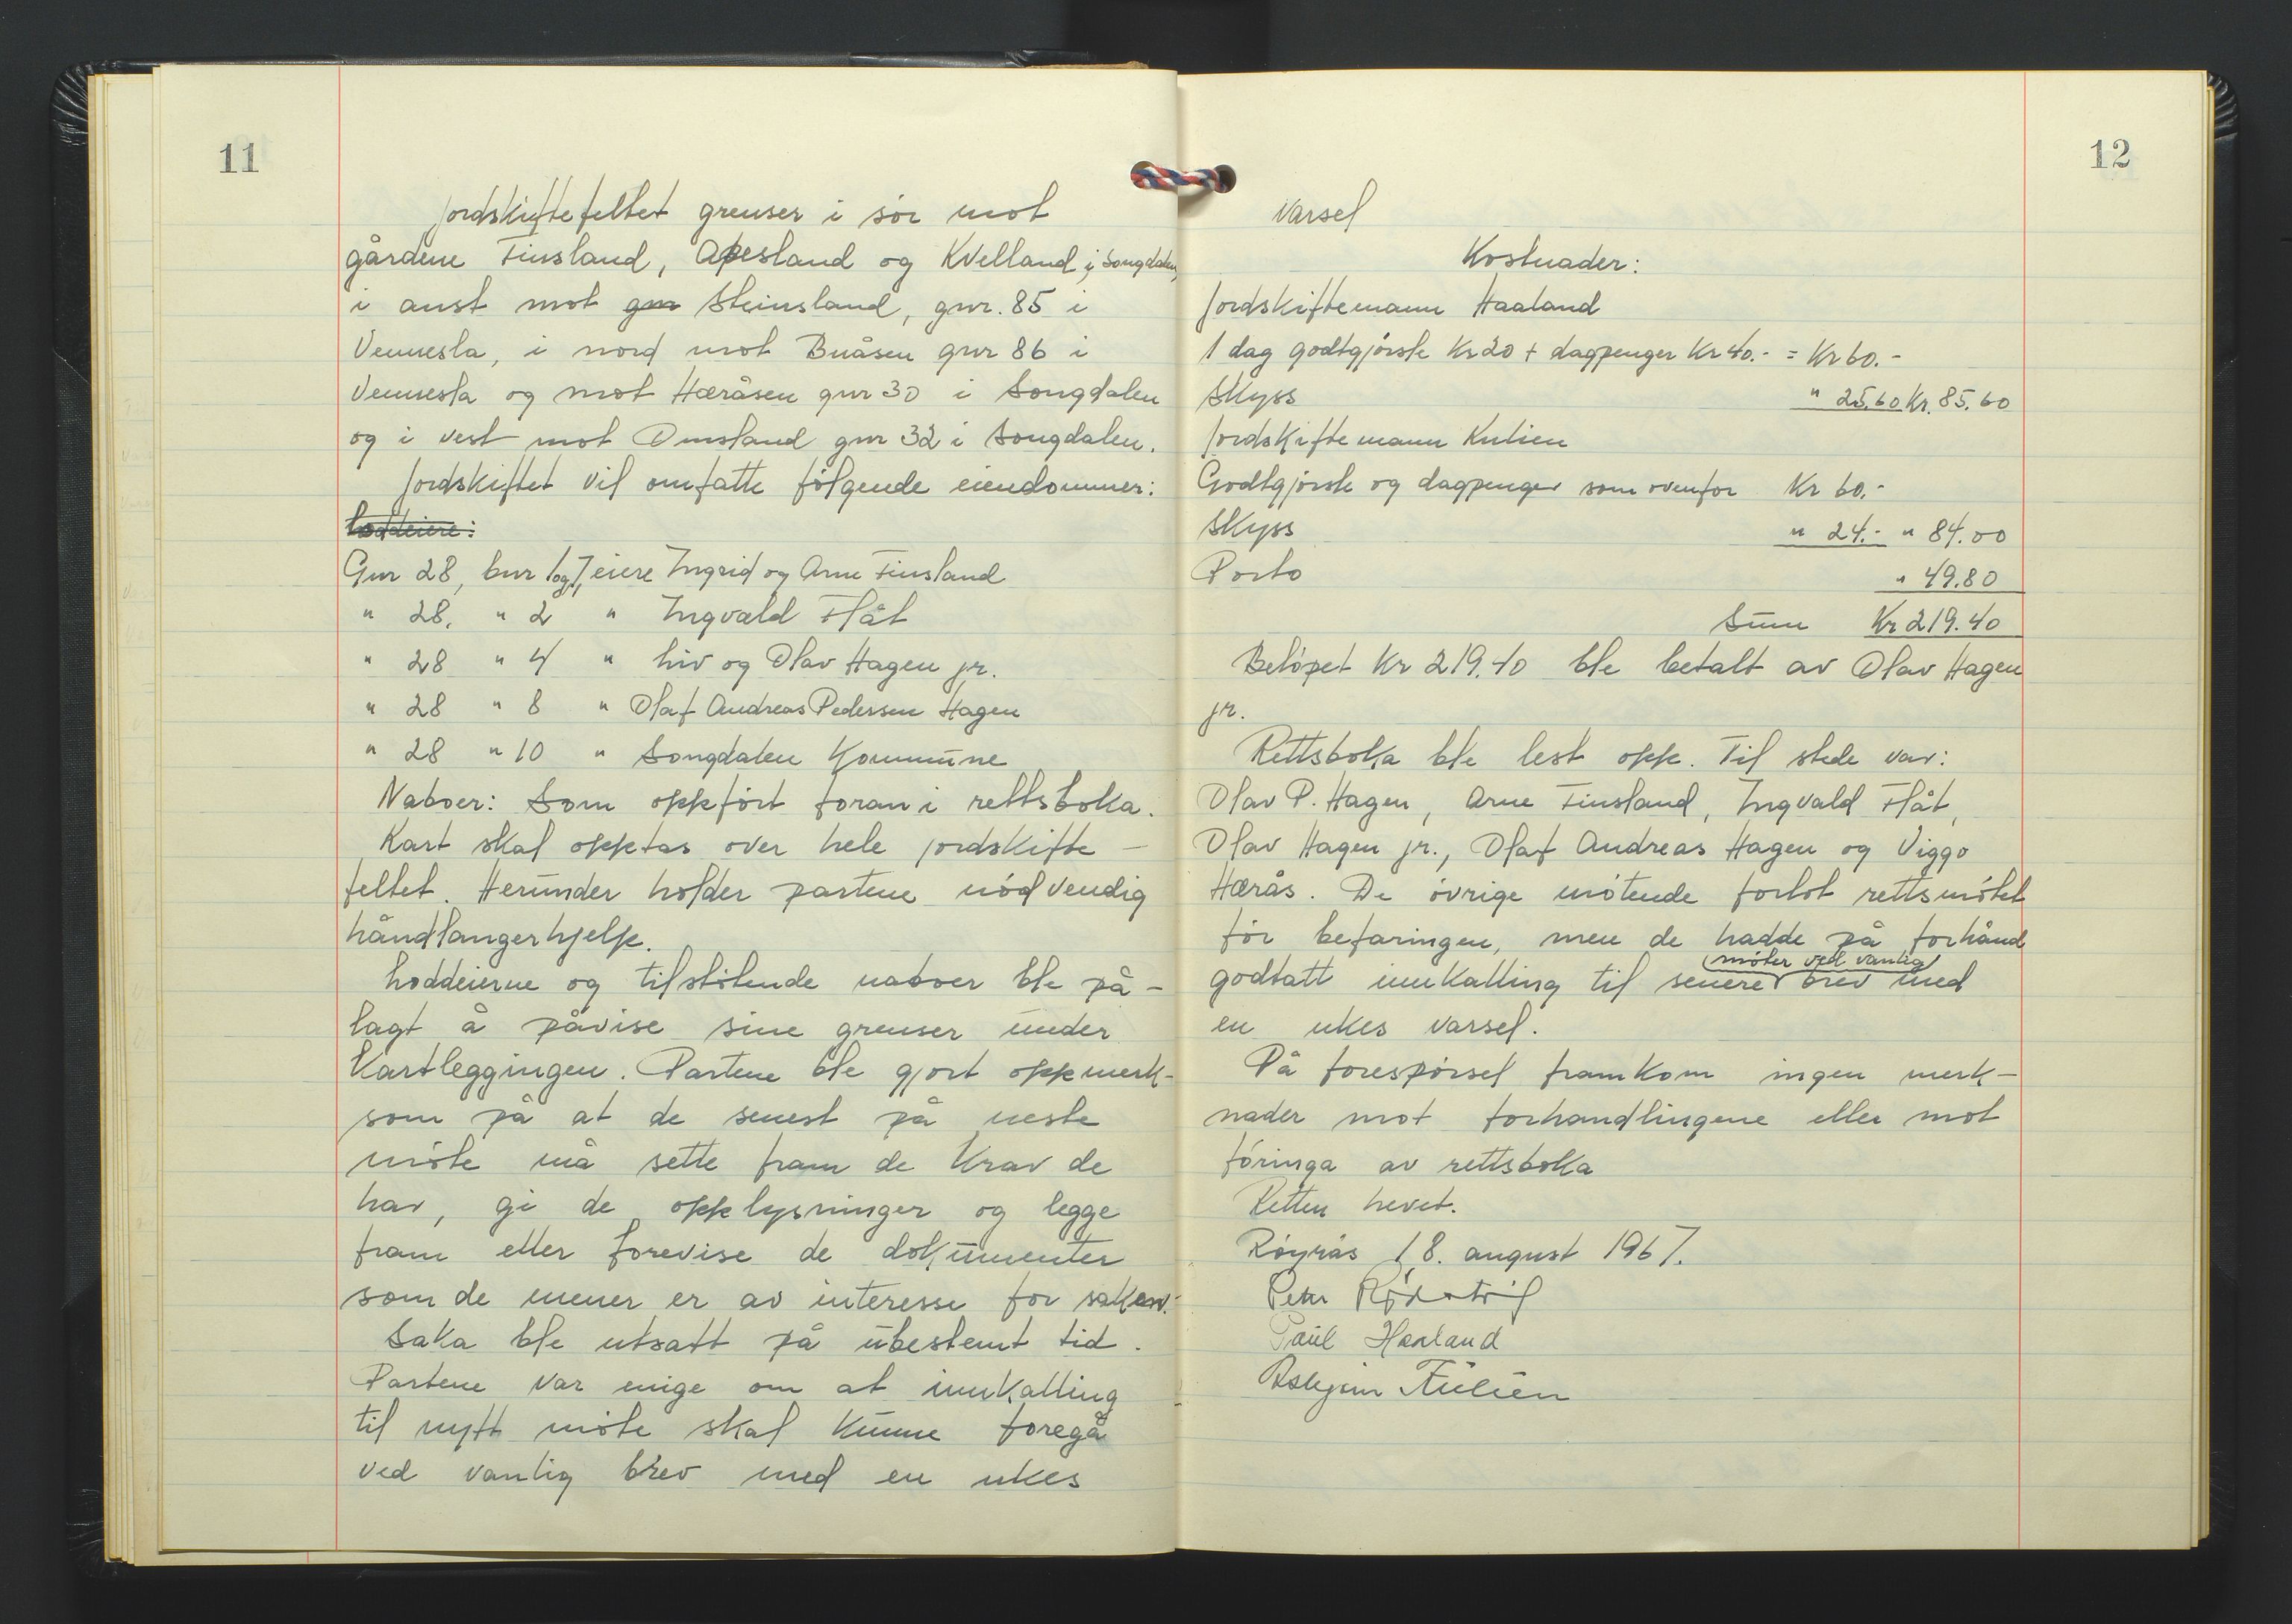 11
Jordskiftefeltet grenser i sör mot
gårdene Finsland, Apesland og Kvelland i Songdalen,
i aust mot gnr Steinsland, gnr. 85 i
Vennesla, i nord mot Buåsen gnr 86 i
Vennesla og mot Hæråsen gnr 30 i Songdalen
og i vest mot Omsland gnr 32 i Songdalen.
Jordskiftet vil omfatte fölgende eiendommer:
Loddeiere:
Gnr 28, bnr 1 og 7, eiere Ingrid og Arne Finsland
" 28, " 2 " Ingvald Flåt
" 28 " 4 " Liv og Olav Hagen jr.
" 28 " 8 " Olaf Andreas Pedersen Hagen
" 28 " 10 " Songdalen Kommune
Naboer: Som oppfört foran i rettsboka.
Kart skal opptas over hele jordskifte-
feltet. Herunder holder partene nödvendig
håndlangerhjelp.
Loddeierne og tilstötende naboer ble på-
lagt å påvise sine grenser under
Kartleggingen. Partene ble gjort oppmerk-
som på at de senest på neste
möte må sette fram de krav de
har, gi de opplysninger og legge
fram eller forevise de dokumenter
som de mener er av interesse for saken.
Saka ble utsatt på ubestemt tid.
Partene var enige om at innkalling
til nytt möte skal kunne foregå
ved vanlig brev med en ukes
12
varsel
Kostnader:
Jordskiftemann Haaland
1 dag godtgjörsle Kr 20 + dagpenger Kr 40.- = Kr 60.-
Skyss " 25.60 Kr. 85.60
Jordskiftemann Kulien
Godtgjörsle og dagpenger som ovenfor Kr 60.-
Skyss " 24.- " 84.00
Porto " 49.80
Sum Kr 219.40
Belöpet Kr 219.40 ble betalt av Olav Hagen
jr.
Rettsboka ble lest opp. Til stede var:
Olav P. Hagen, Arne Finsland, Ingvald Flåt,
Olav Hagen jr., Olaf Andreas Hagen og Viggo
Hærås. De övrige mötende forlot rettsmötet
för befaringen, men de hadde på forhånd
möter ved vanlig
godtatt innkalling til senere brev med
en ukes varsel.
På forespörsel framkom ingen merk-
nader mot forhandlingene eller mot
föringa av rettsboka
Retten hevet.
Röyrås 18. august 1967.
Paul Haaland